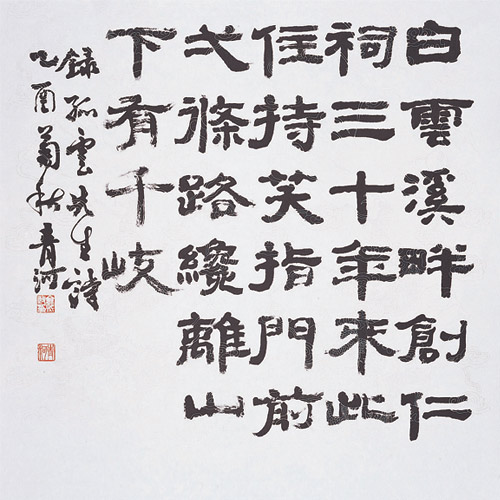 白雲溪畔創仁
祠三十年來此
住持笑指門前
弌條路纔離山
下有千岐
錄孤雲先生詩
乙酉菊秋青河